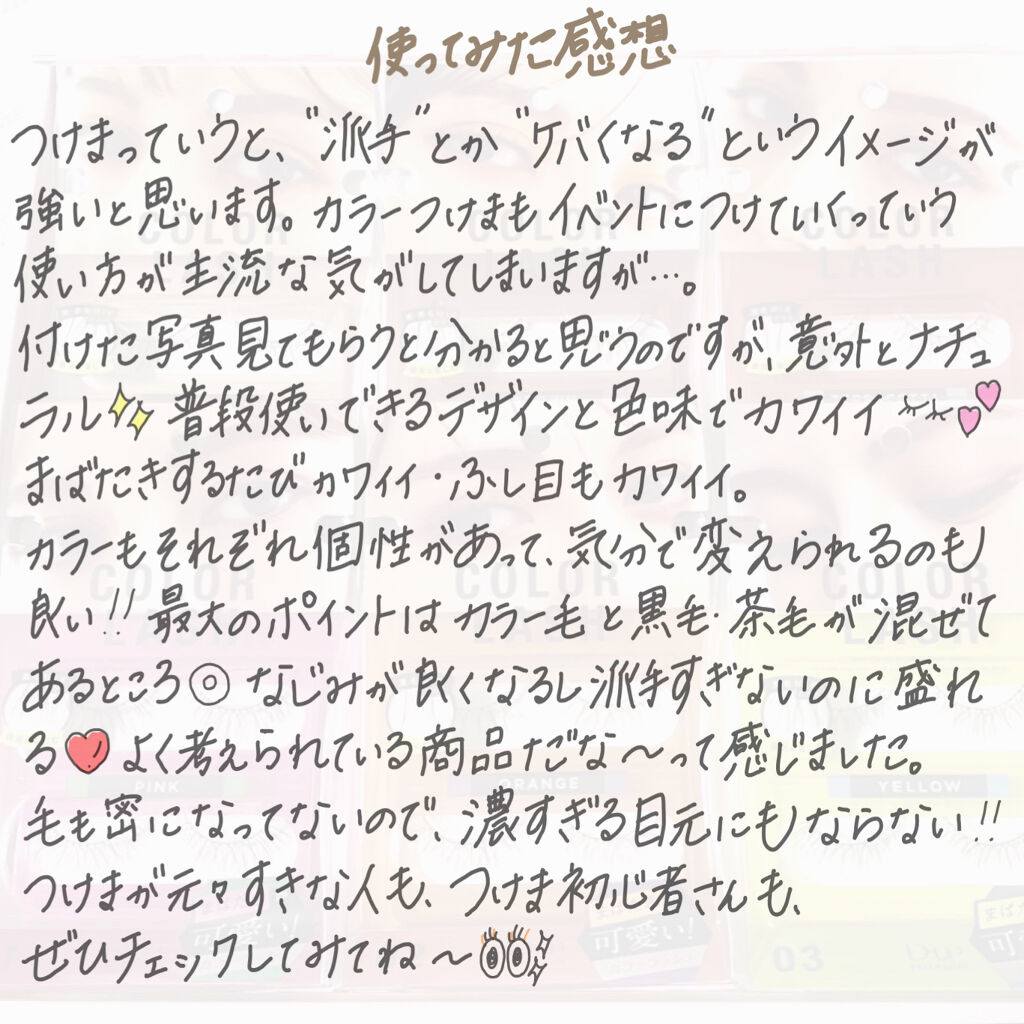 使ってみた感想
つけまっていうと、"派手"とか"ケバくなる"というイメージが
強いと思います。カラーつけまもイベントにつけていくっていう
使い方が主流な気がしてしまいますが…。
付けた写真見てもらうと分かると思うのですが、意外とナチュ
ラル✨普段使いできるデザインと色味でカワイイ💕
まばたきするたびカワイイ・ふし目もカワイイ。
カラーもそれぞれ個性があって、気分で変えられるのも
良い!!最大のポイントはカラー毛と黒毛・茶毛が混ぜて
あるところ◎なじみが良くなるし派手すぎないのに盛れ
る❤️よく考えられている商品だな〜って感じました。
毛も密になってないので、濃すぎる目元にもならない!!
つけまが元々すきな人も、つけま初心者さんも、
ぜひチェックしてみてね〜👀✨
COLOR LASH
COLOR LASH
COLOR LASH
COLOR LASH
COLOR LASH
COLOR LASH
PINK
ORANGE
YELLOW
可愛い!
可愛い!
03